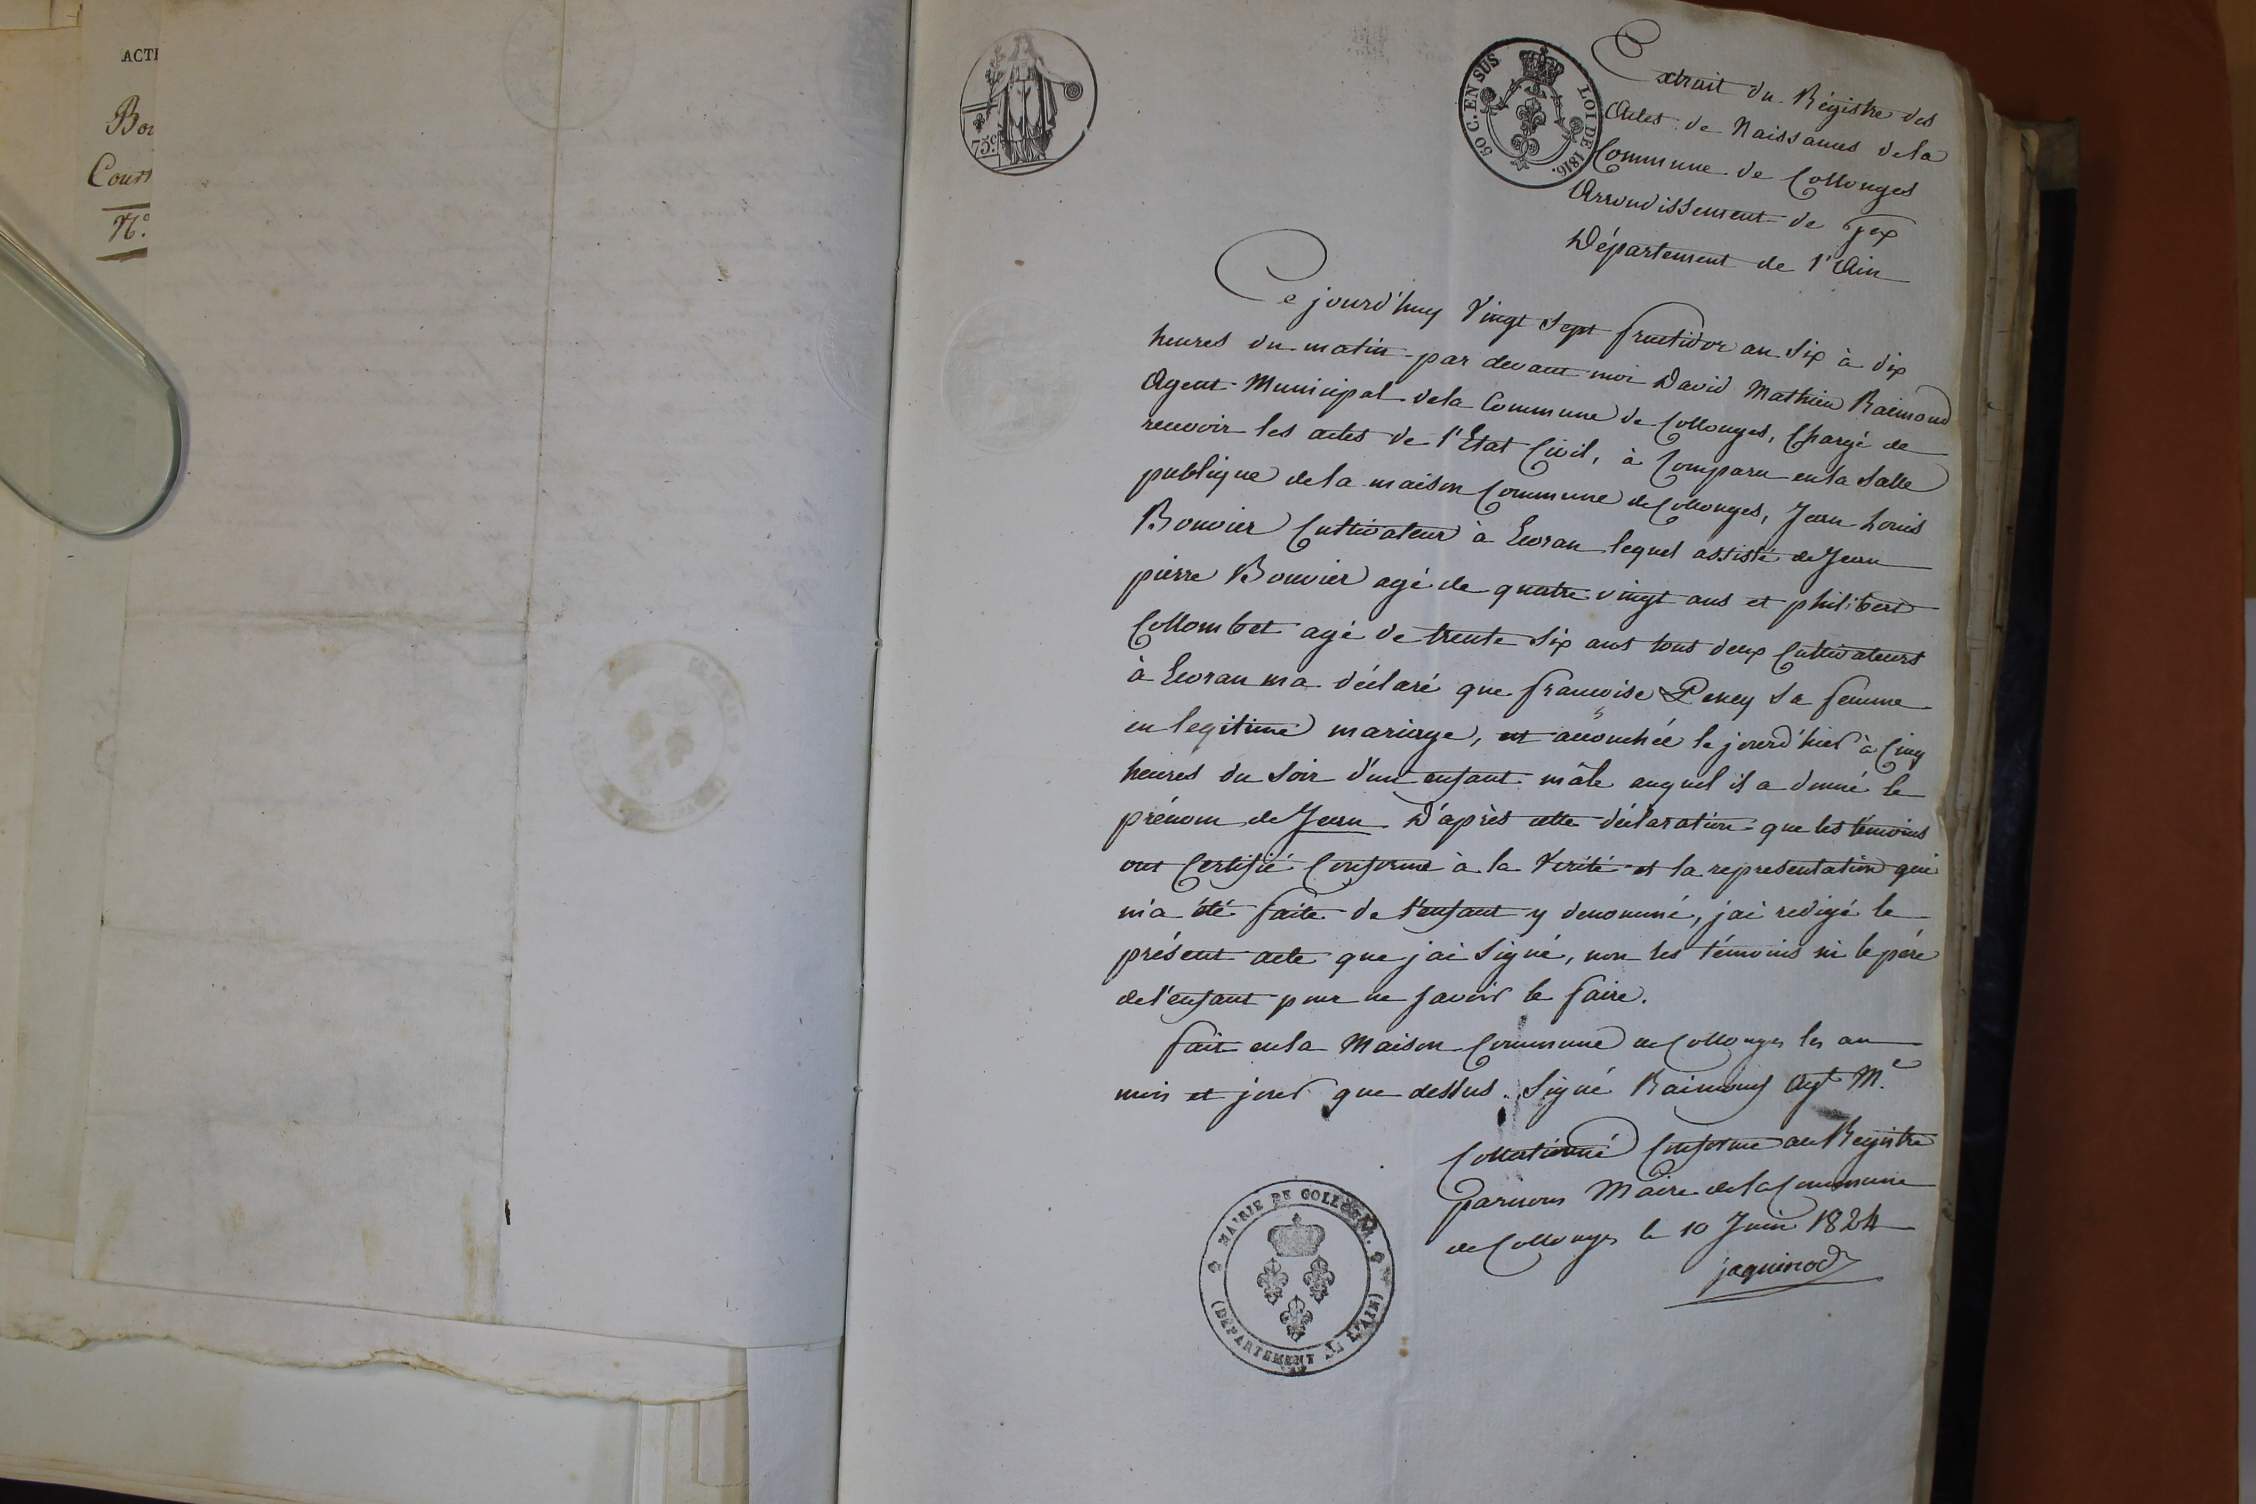 ACTE
Bou
Cours
N.º
75.c
50 C. EN SUS
LOI DE 1816.
Extrait du Régistre des
Actes de Naissances de la
Commune de Collonges
Arrondissement de Gex
Département de l'Ain
Ce jourd'huy Vingt Sept fructidor an Six à dix
heures du matin par devant moi David Mathieu Raimond
Agent Municipal dela Commune de Collonges, Chargé de
recevoir les actes de l'Etat Civil, à Comparu en la Salle
publique de la maison Commune de Collonges, Jean Louis
Bouvier Cultivateur à Ecoran lequel assisté de Jean
pierre Bouvier agé de quatre vingt ans et philibert
Collombet agé de trente Six ans tous deux Cultivateurs
à Ecoran ma déclaré que françoise Peney Sa femme
en legitime mariage, est accouchée le jourd'hier à Cinq
heures du Soir d'un enfant mâle auquel il a donné le
prénom de Jean D'après cette déclaration que les témoins
ont Certifié Conforme à la Verité et la representation qui
m'a été faite de l'enfant y denommé, jai redigé le
présent acte que jai Signé, non les témoins ni le père
de l'enfant pour ne Savoir le faire.
fait en la Maison Commune de Collonges les an
mois et jour que dessus. Signé Raimond Agt M.e
Collationné Conforme au Registre
parnous Maire de la Commune
de Collonges le 10 Juin 1824
jaquinod
MAIRIE DE COLLONG.
(DEPARTEMENT DE L'AIN)